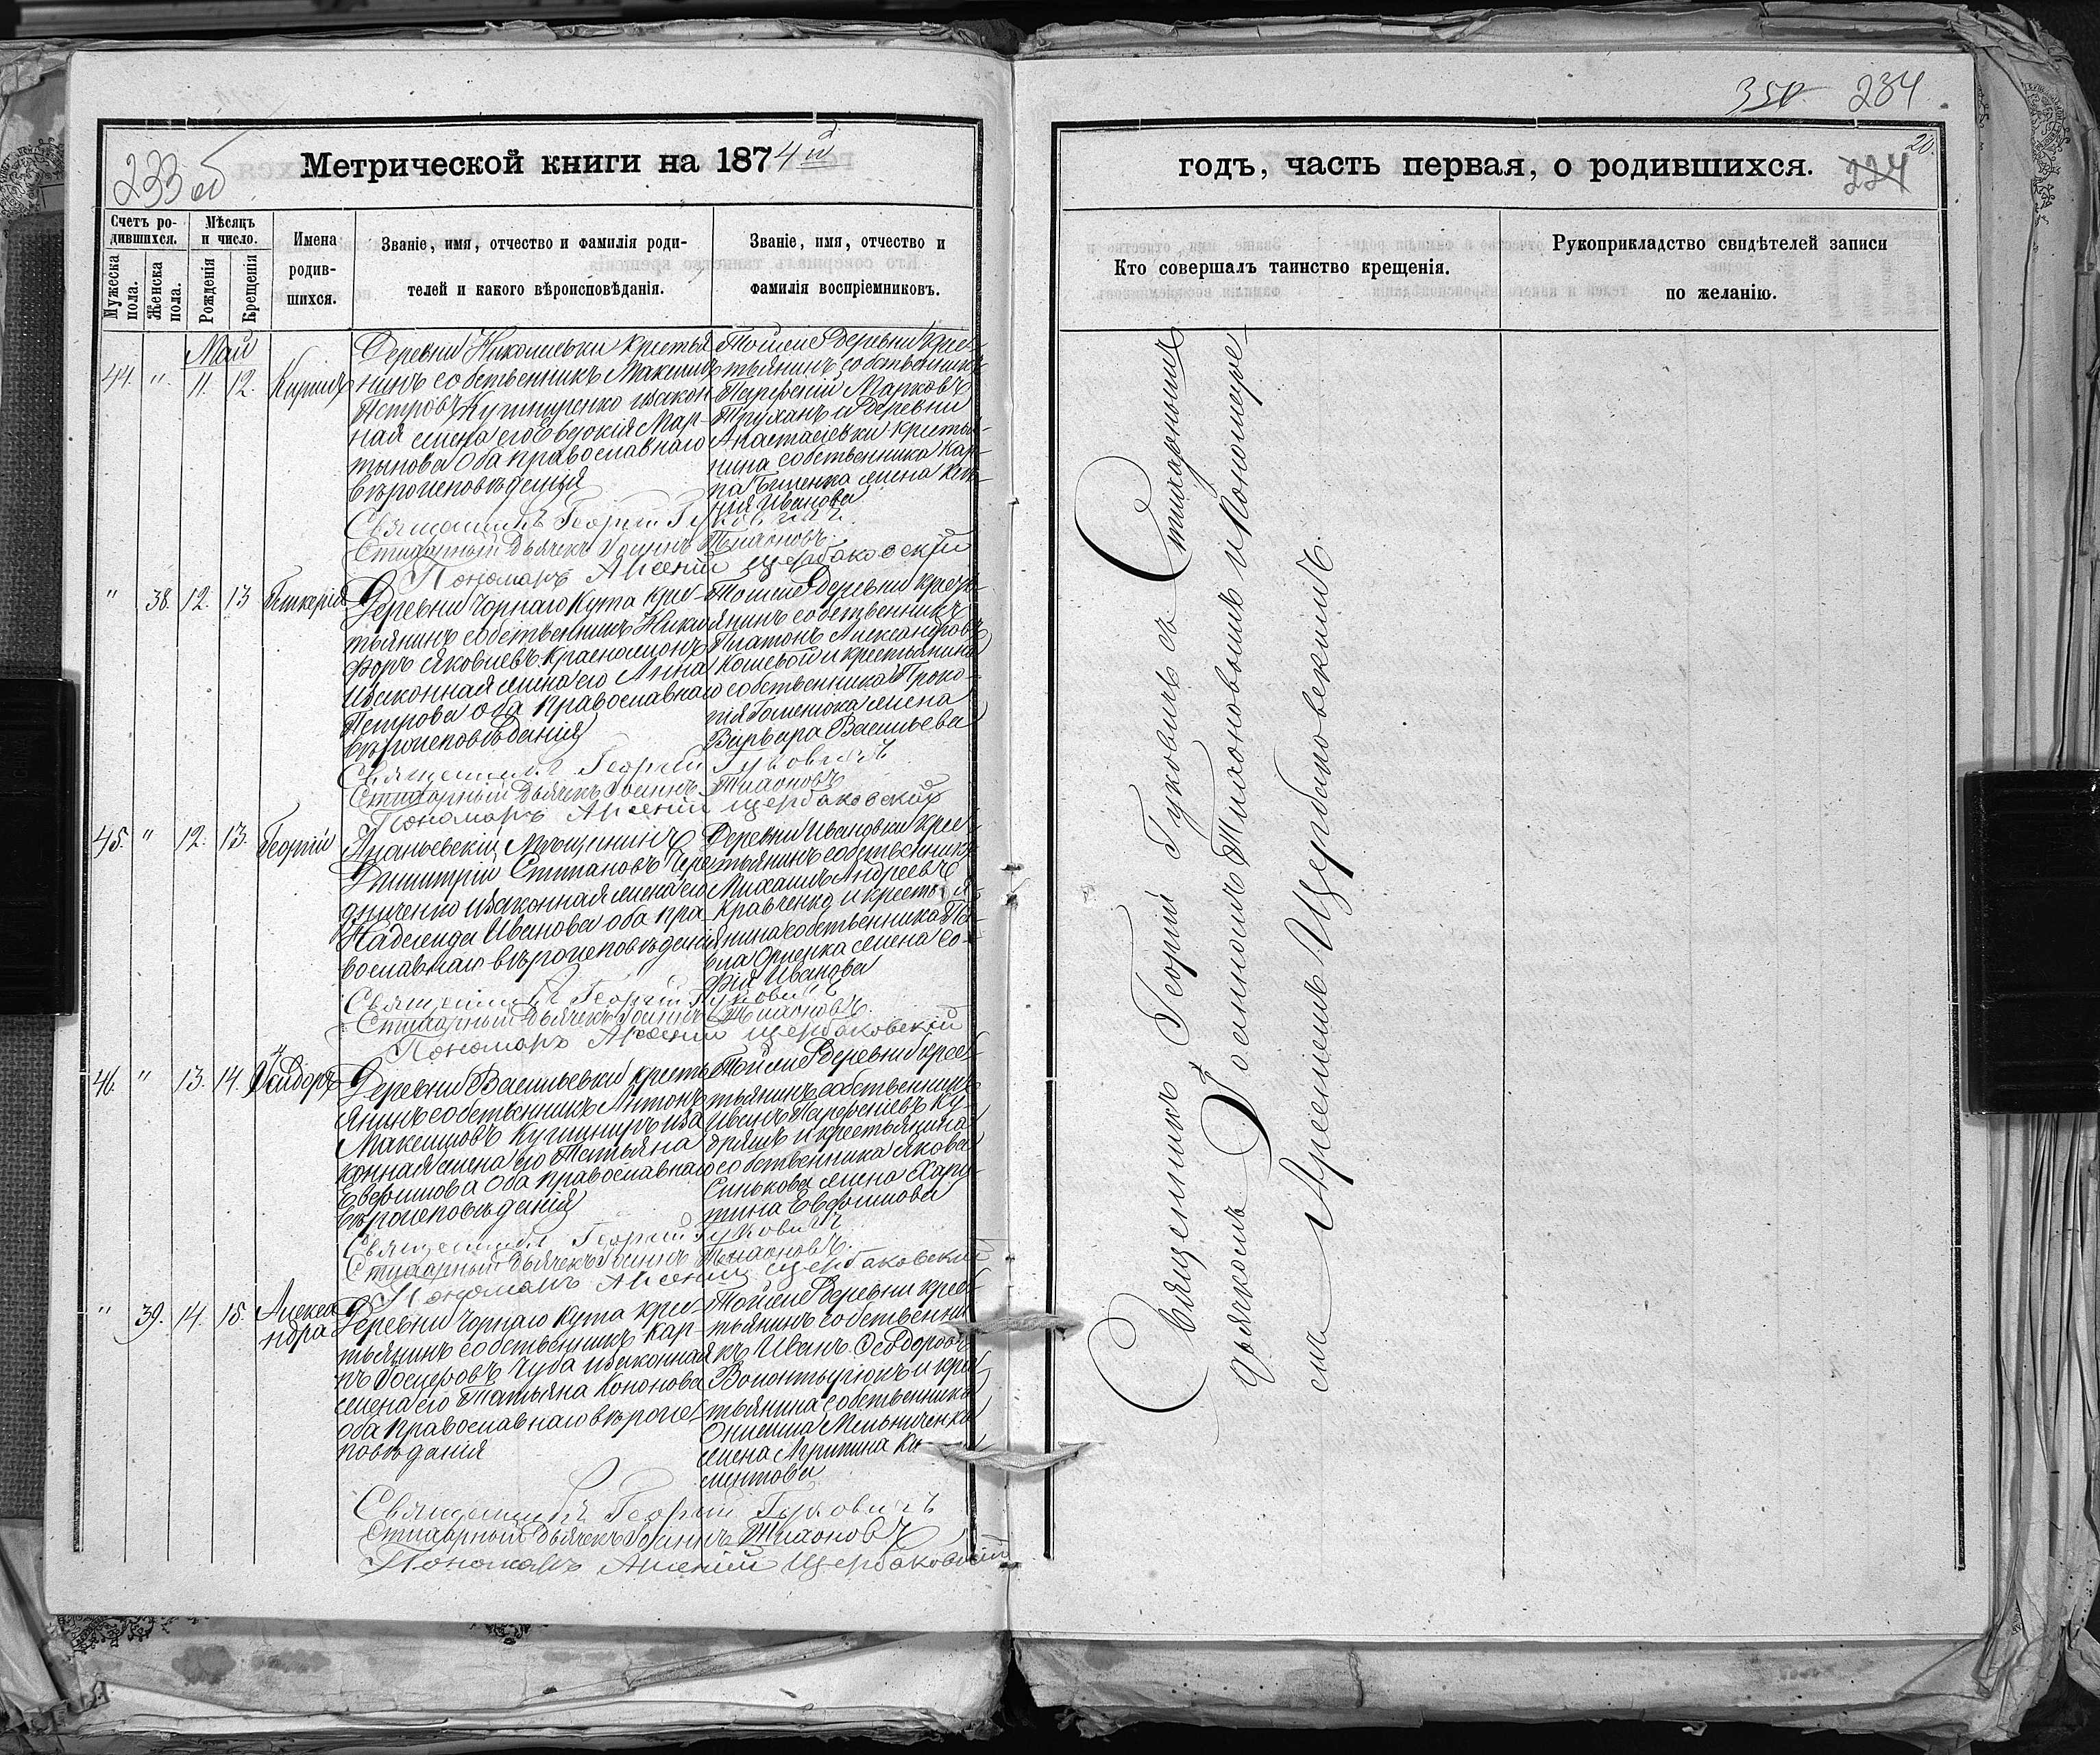 233 об
Метрической книги на 1874 й
Счетъ ро-
дившихся.
Мужеска
пола.
Женска
пола.
Мѣсяцъ
и число.
Рожденія
Крещенія
Имена
родив-
шихся.
Званіе, имя, отчество и фамилія роди-
телей и какого вѣроисповѣданія.
Званіе, имя, отчество и
фамилія воспріемниковъ.
Май
44. " 11. 12. Кирилъ
Деревни Николаевки крестья
нинъ собственникъ Максимъ
Петровъ Кушниренко изакон
ная жена его Евдокія Мар-
тынова оба православнаго
вѣроисповѣденія
Тойже деревни крес-
тьянинъ собственникъ
Парфеній Марковъ
Труханъ и деревни
Анастасіевки крестья-
нина собственника Кар-
па жена
нія Иванова
Священникъ Георгій Гуковичъ
Стихарный Дьячекъ Іоаннъ Тихоновъ
Пономарь Арсеній Щербаковскій
" 38. 12. 13 Гликерія
Деревни Чорнаго Кута крес-
тьянинъ собственникъ Ники
форъ Яковлевъ
изаконная жена его Анна
Петрова оба православнаго
вѣроисповѣданія
Тойже деревни кресть
янинъ собственникъ
Платонъ Александровъ
Кошевой и крестьянина
собственника Проко-
пія жена
Варвара Васильева
Священникъ Георгій Гуковичъ
Стихарный Дьячекъ Іоаннъ Тихоновъ
Пономарь Арсеній Щербаковскій
45. " 12. 13. Георгій
Ананьевскій Мѣщанинъ
Димитрій Степановъ Чере
дниченко изаконная жена его
Надежда Иванова оба пра
вославнаго вѣроисповѣденія
Деревни Ивановки крес-
тьянинъ собственникъ
Михаилъ Андреевъ
Кравченко и кресть я
нина собственника Па-
вла жена Со-
фія Иванова
Священникъ Георгій Гуковичъ
Стихарный Дьячекъ Іоаннъ Тихоновъ.
Пономарь Арсеній Щербаковскій
46. " 13. 14. Исидоръ
Деревни Васильевки кресть
янинъ собственникъ Антонъ
Максимовъ Кушниръ иза
конная жена его Татьяна
Евфимова оба православнаго
вѣроисповѣденія
Тойже деревни крес
тьянинъ собственникъ
Иванъ Парфеніевъ Ку-
дряшъ и крестьянина
собственника Якова
Синькова жена Хари-
тина Евфимова
Священникъ Георгій Гуковичъ
Стихарный Дьячекъ Іоаннъ Тихоновъ.
Пономарь Арсеній Щербаковскій
" 39. 14. 15. Алекса
ндра
Деревни Чорнаго Кута крес-
тьянинъ собственникъ Кар-
пъ Чуба изаконная
жена его Татьяна Кононова
оба православнаго вѣроис-
повѣданія
Тойже деревни крес
тьянинъ собственни
къ Иванъ Ѳеодоровъ
и крес
тьянина собственника
Онисима Мельниченки
жена Агрипина Кли
ментова
Священникъ Георгій Гуковичъ
Стихарный Дьячекъ Іоаннъ Тихоновъ
Пономарь Арсеній Щербаковскій
350 234
20.
годъ, часть первая, о родившихся. 224
Кто совершалъ таинство крещенія.
Рукоприкладство свидѣтелей записи
по желанію.
Священникъ Георгій Гуковичъ съ Стихарнымъ
дьячкомъ Іоанномъ Тихоновымъ и Пономаре
мъ Арсеніемъ Щербаковскимъ.